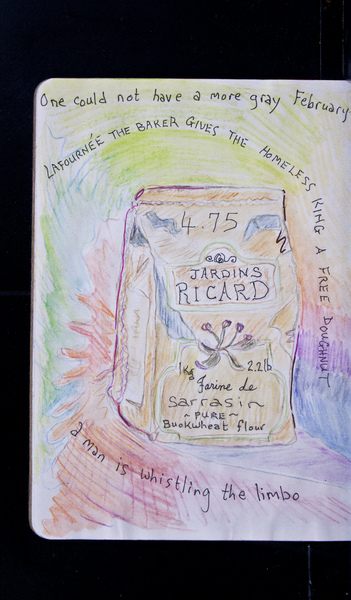 One could not have a more gray February
LAFOURNÉE THE BAKER GIVES THE HOMELESS KING A FREE DOUGHNUT
4.75
JARDINS
RICARD
1Kg 2.2lb
Farine de
Sarrasin
~ PURE ~
Buckwheat flour
a man is whistling the limbo